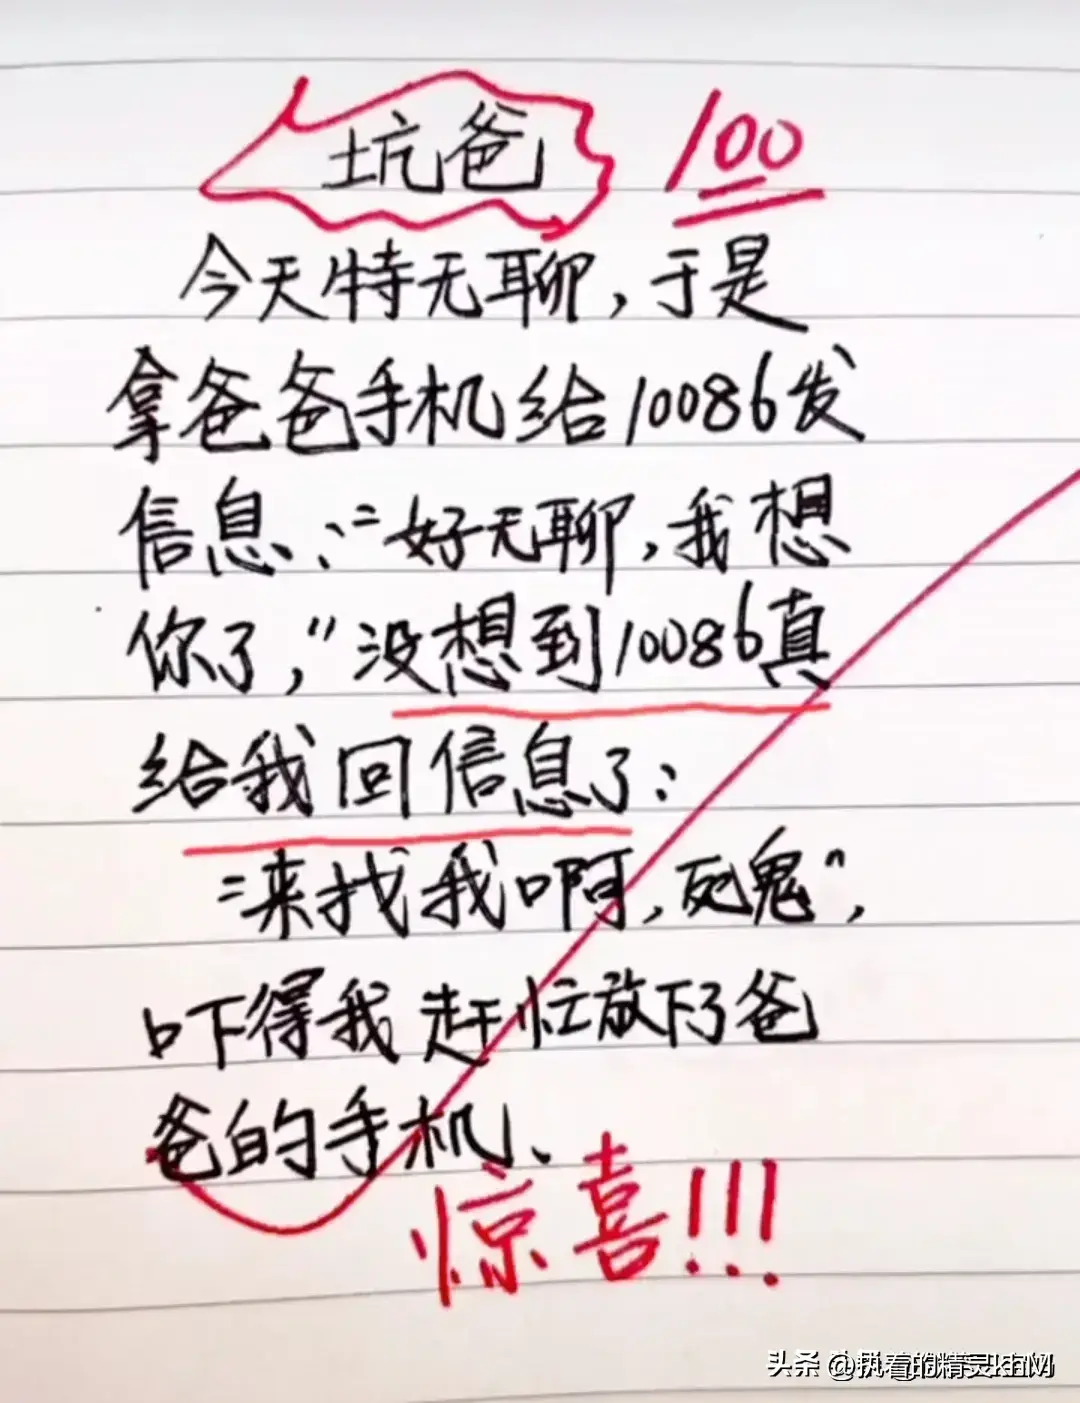 坑爸 100
今天特无聊,于是
拿爸爸手机给10086发
信息:"好无聊,我想
你了,"没想到10086真
给我回信息了:
"来找我啊,死鬼",
吓得我赶忙放下了爸
爸的手机、
惊喜!!!
头条 @执着的精灵